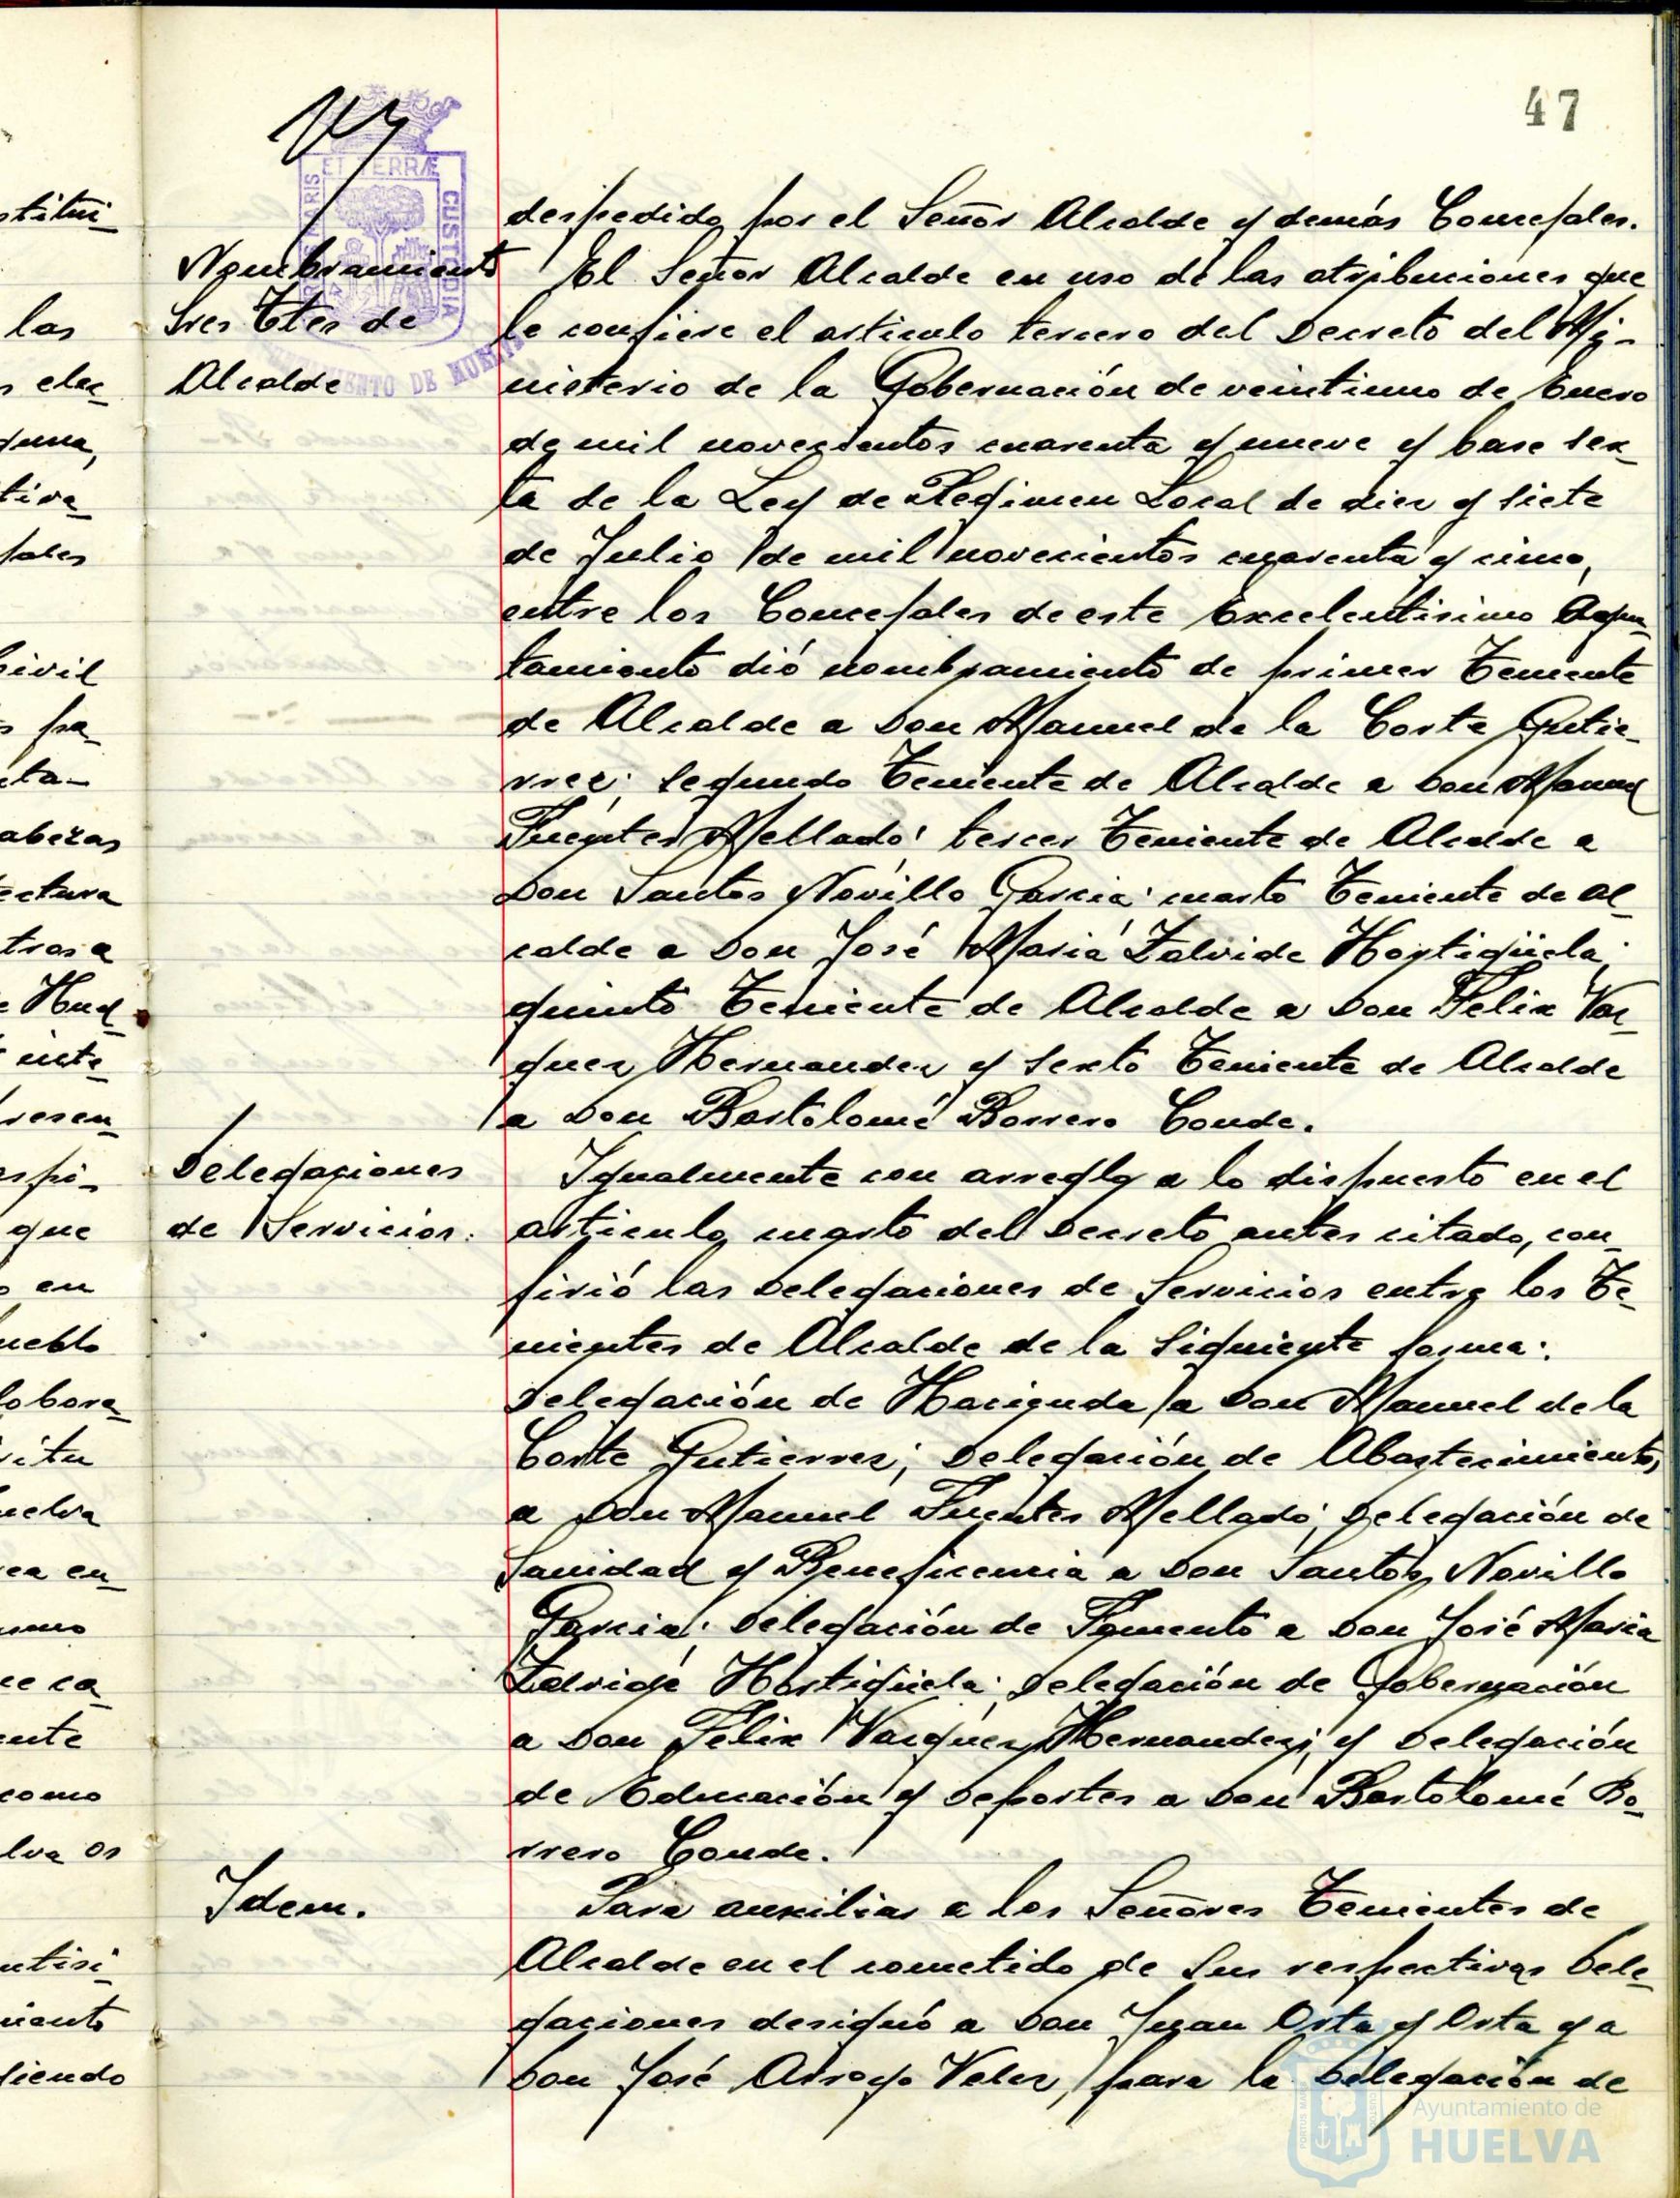 47
despedido por el Señor Alcalde y demás Concejales.
Nombramiento
Sres Ttes de
Alcalde
El Señor Alcalde en uso de las atribuciones que
le confiere el articulo tercero del Decreto del Mi-
nisterio de la Gobernación de veintiuno de Enero
de mil novecientos cuarenta y nueve y base sex-
ta de la Ley de Regimen Local de diez y siete
de Julio de mil novecientos cuarenta y cinco,
entre los Concejales de este Excelentisimo Ayun-
tamiento dió nombramiento de primer Teniente
de Alcalde a Don Manuel de la Corte Gutie-
rrez; segundo Teniente de Alcalde a Don Manuel
Fuentes Mellado; tercer Teniente de Alcalde a
Don Santos Novillo Garcia; cuarto Teniente de Al-
calde a Don José Maria Zalvide Hortigüela;
quinto Teniente de Alcalde a Don Felix Vaz-
quez Hernandez y sexto Teniente de Alcalde
a Don Bartolomé Borrero Conde.
Delegaciones
de Servicios.
Igualmente con arreglo a lo dispuesto en el
articulo cuarto del Decreto antes citado, con-
firió las Delegaciones de Servicios entre los Te-
nientes de Alcalde de la siguiente forma:
Delegación de Hacienda a Don Manuel de la
Corte Gutierrez; Delegación de Abastecimientos,
a Don Manuel Fuentes Mellado; Delegación de
Sanidad y Beneficencia a Don Santos Novillo
Garcia; Delegación de Fomento a Don José Maria
Zalvide Hortigüela; Delegación de Gobernación
a Don Felix Vazquez Hernandez; y Delegación
de Educación y Deportes a Don Bartolomé Bo-
rrero Conde.
Idem.
Para auxiliar a los Señores Tenientes de
Alcalde en el cometido de sus respectivas Dele-
gaciones designó a Don Juan Orta y Orta y a
Don José Arroyo Velez, para la Delegación de
Ayuntamiento de
HUELVA